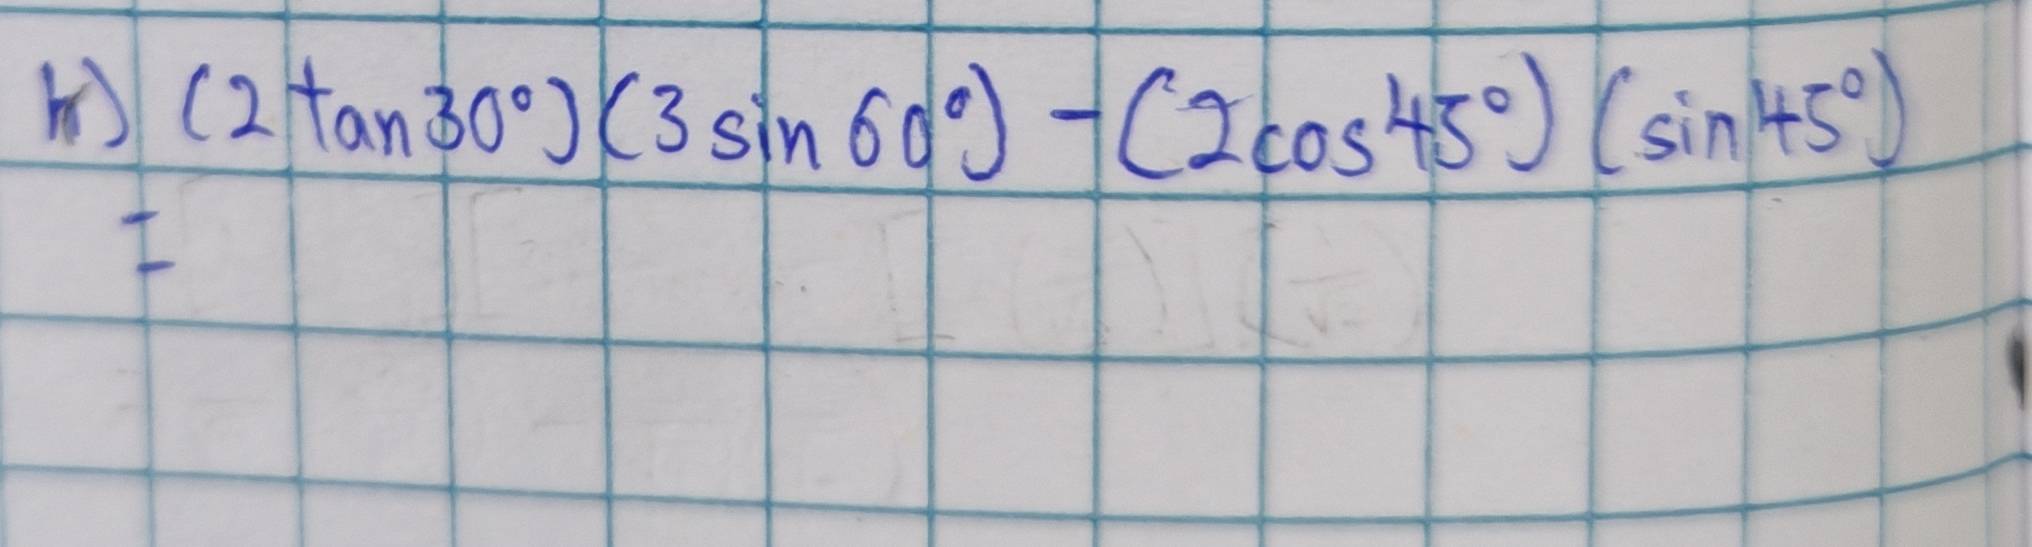 h) (2 tan 30°)(3 sin 60°) - (2 cos 45°) (sin 45°)
=